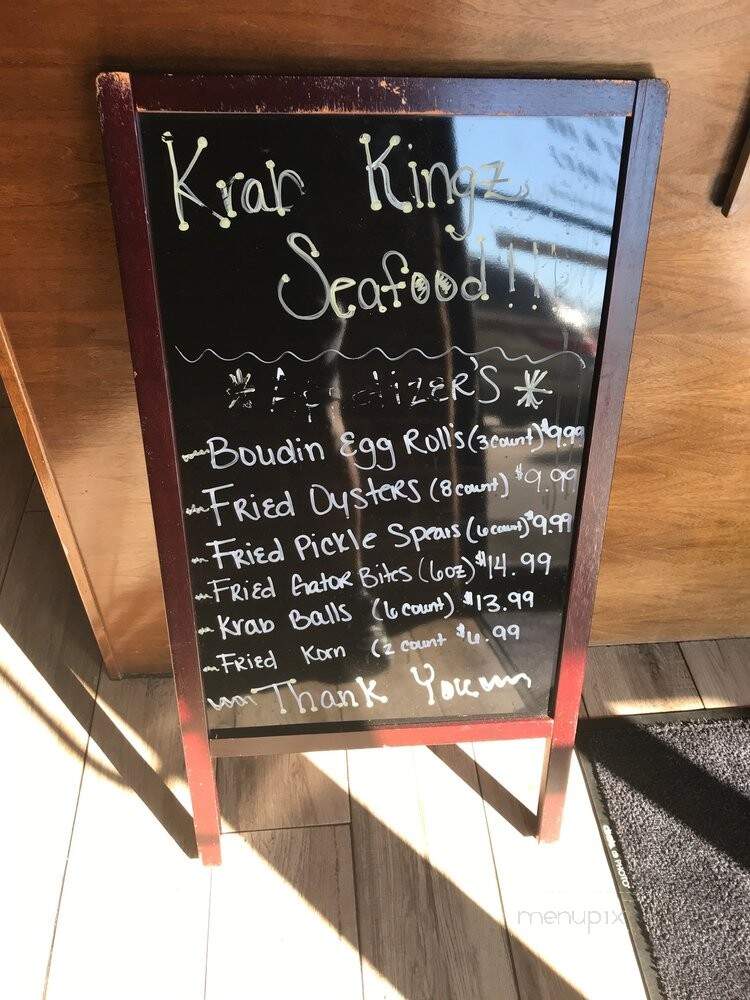 Krab Kingz
Seafood!!!
*Appetizer's*
Boudin Egg Rolls (3 count) $9.99
Fried Oysters (8 count) $9.99
Fried Pickle Spears (6 count) $9.99
Fried Gator Bites (6oz) $14.99
Krab Balls (6 count) $13.99
Fried Korn (2 count $6.99
Thank You
menupix